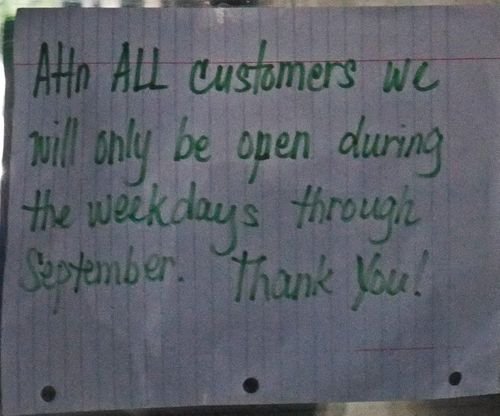 Attn ALL customers we
will only be open during
the weekdays through
September. Thank You!